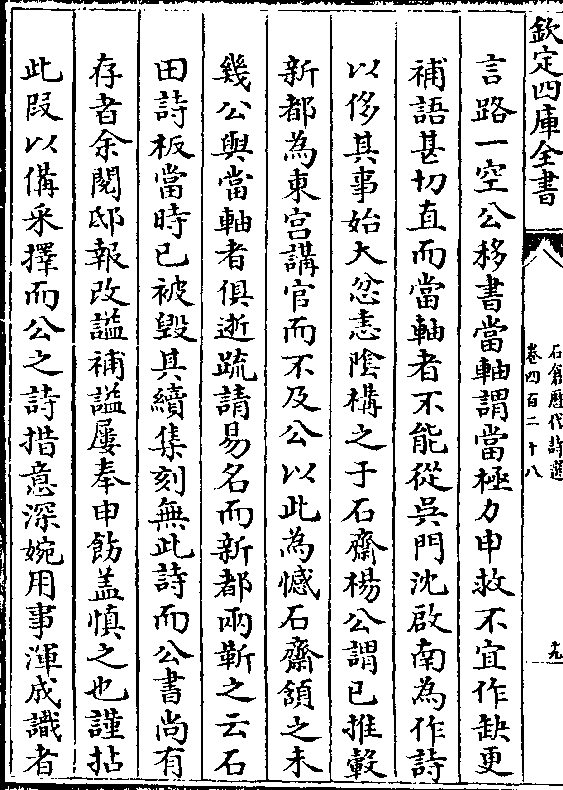 欽定四庫全書
石倉歷代詩選
卷四百二十八
九
言路一空公移書當軸謂當極力申救不宜作缺更
補語甚切直而當軸者不能從吳門沈啟南為作詩
以侈其事始大忿恚陰構之于石齋楊公謂已推轂
新都為東宮講官而不及公以此為憾石齋頷之未
幾公與當軸者俱逝疏請易名而新都兩靳之云石
田詩板當時已被毀其續集刻無此詩而公書尚有
存者余閱邸報改謚補謚屢奉申飭盖慎之也謹拈
此段以備采擇而公之詩措意深婉用事渾成識者